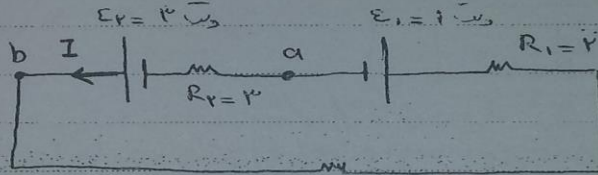 ε۲ = ۳ ولت ε۱ = ولت
R۱ = ۲
b I a
R۲ = ۳